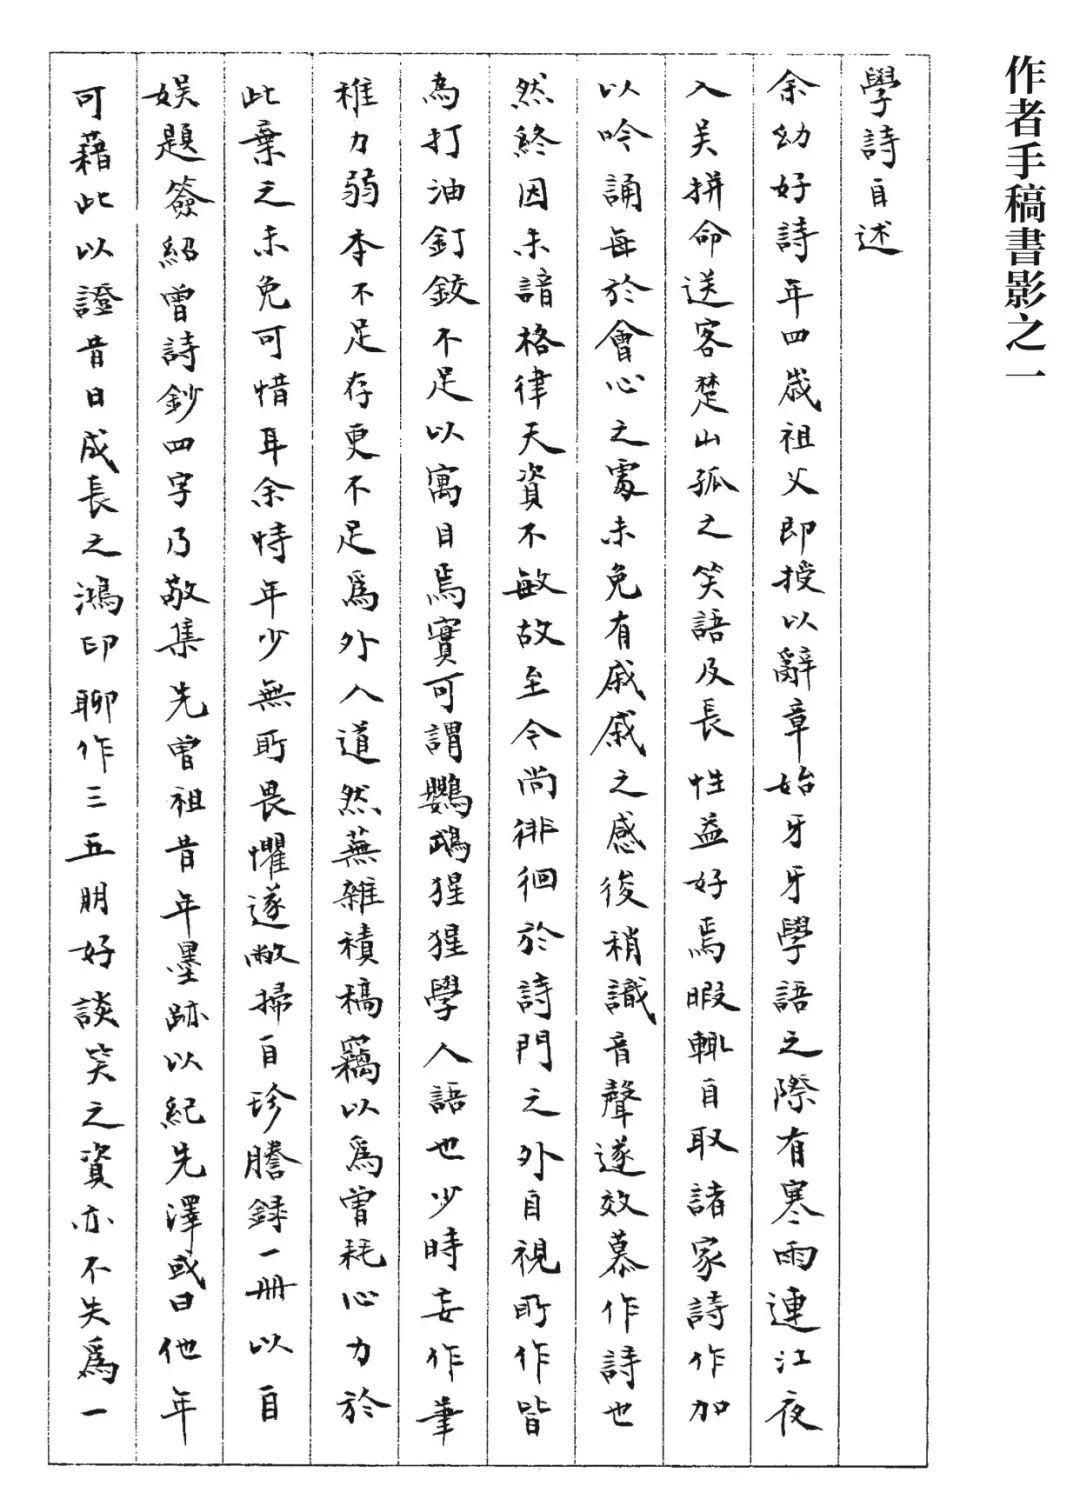 作者手稿書影之一
學詩自述
余幼好詩年四歲祖父即授以辭章始牙牙學語之際有寒雨連江夜
入吴拼命送客楚山孤之笑語及長性益好焉暇輒自取諸家詩作加
以吟誦每於會心之處未免有戚戚之感後稍識音聲遂效慕作詩也
然終因未諳格律天資不敏故至今尚徘徊於詩門之外自視所作皆
為打油釘鉸不足以寓目焉實可謂鸚鵡猩猩學人語也少時妄作筆
稚力弱本不足存更不足爲外人道然蕪雜積稿竊以爲曾耗心力於
此棄之未免可惜耳余時年少無所畏懼遂敝掃自珍謄録一冊以自
娱題簽紹曾詩鈔四字乃敬集先曾祖昔年墨跡以紀先澤或曰他年
可藉此以證昔日成長之鴻印聊作三五朋好談笑之資亦不失爲一